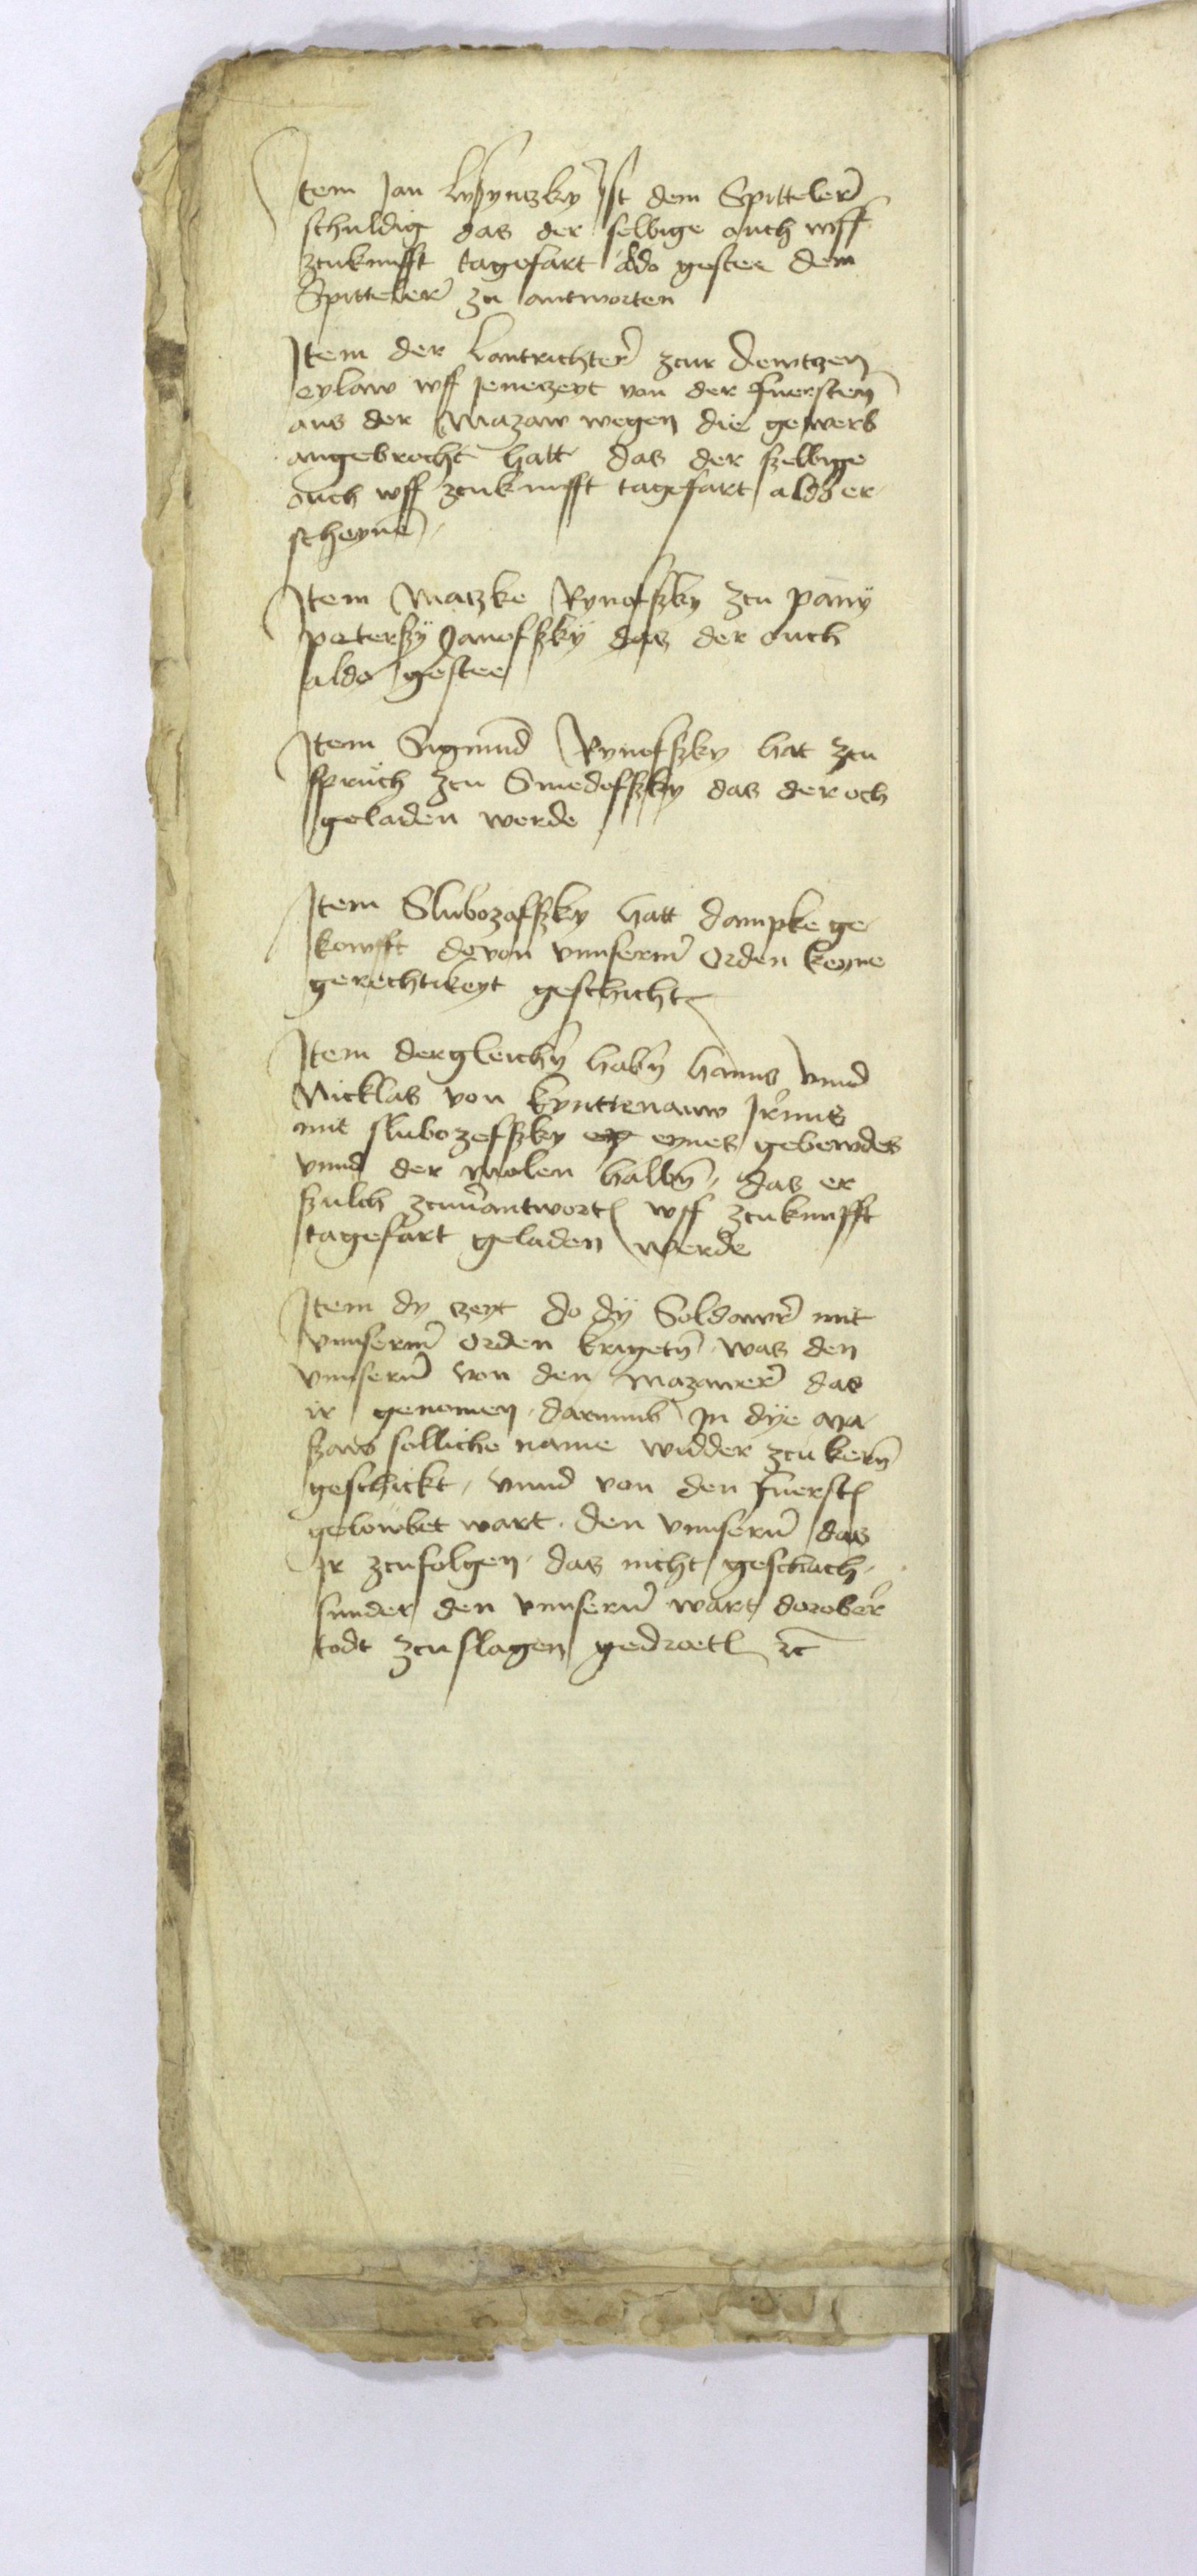 Item Jan Lyßyntzky Ist dem Spitteler
schuldig das der selbige ouch vff
zcukunfft tagefart aldo gestee dem
Spitteler zu antworten
Item der Lantrichter zcur dewtzen
eylaw vff jenezeyt von der fuersten
aus der Mazaw wegen die gewerb
angebrocht hatt das der szelbige
ouch vff zcukunfft tagefart aldo er
scheyne
Item Matzke Rynofszky zcu pany
peterszÿ Janofszkÿ das der ouch
aldo gestee
Item Sigmund Rynofszky hat zcu
spruch zcu Smedofszky das der och
geladen werde
Item Slubozofszky hatt dampke ge
kowfft do von vnnserm Orden keyne
gerechtikeyt geschicht
Item dergleichn habn hanns vnnd
Nicklas von kynttenauw Jrnus
mit slubozefszky eynes gebewdes
vnnd der molen halbn, das er
szulch zcuuerantwort vff zcukunfft
tagefart geladen werde
Item dy zeyt do dÿ Soldawer mit
vnnserm Orden krigetn was den
vnnsern von den mazawer das
ir genomen, darumb Jn dÿe Ma
szaw solliche name widder zcu kern
geschickt, vnnd von den fuerst
gelowbet wart, den vnnsern das
Jr zcufolgen, das nicht geschach,
sunder den vnnsern wart dorober
todt zcuslagen gedroet etc